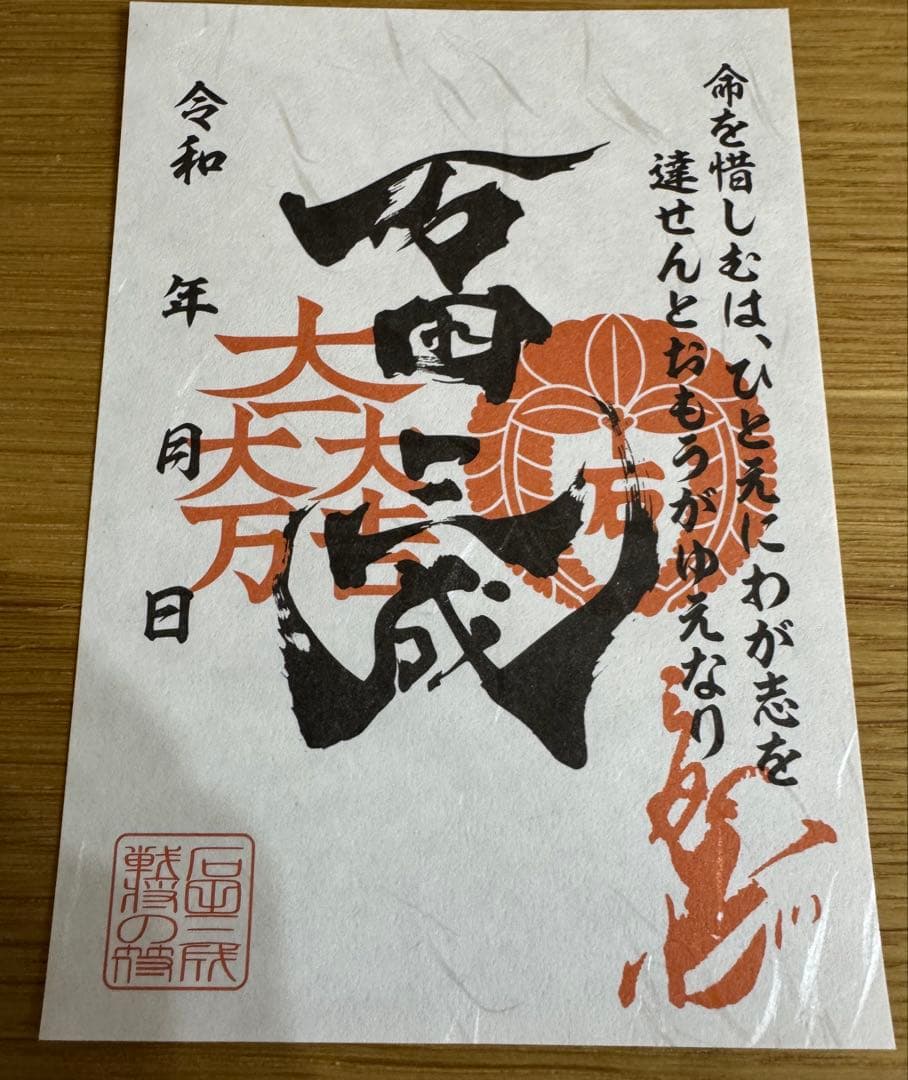 命を惜しむは、ひとえにわが志を
達せんとおもうがゆえなり
石
石田三成
大一大万大吉
令和 年 月 日
石田三成
戦将の